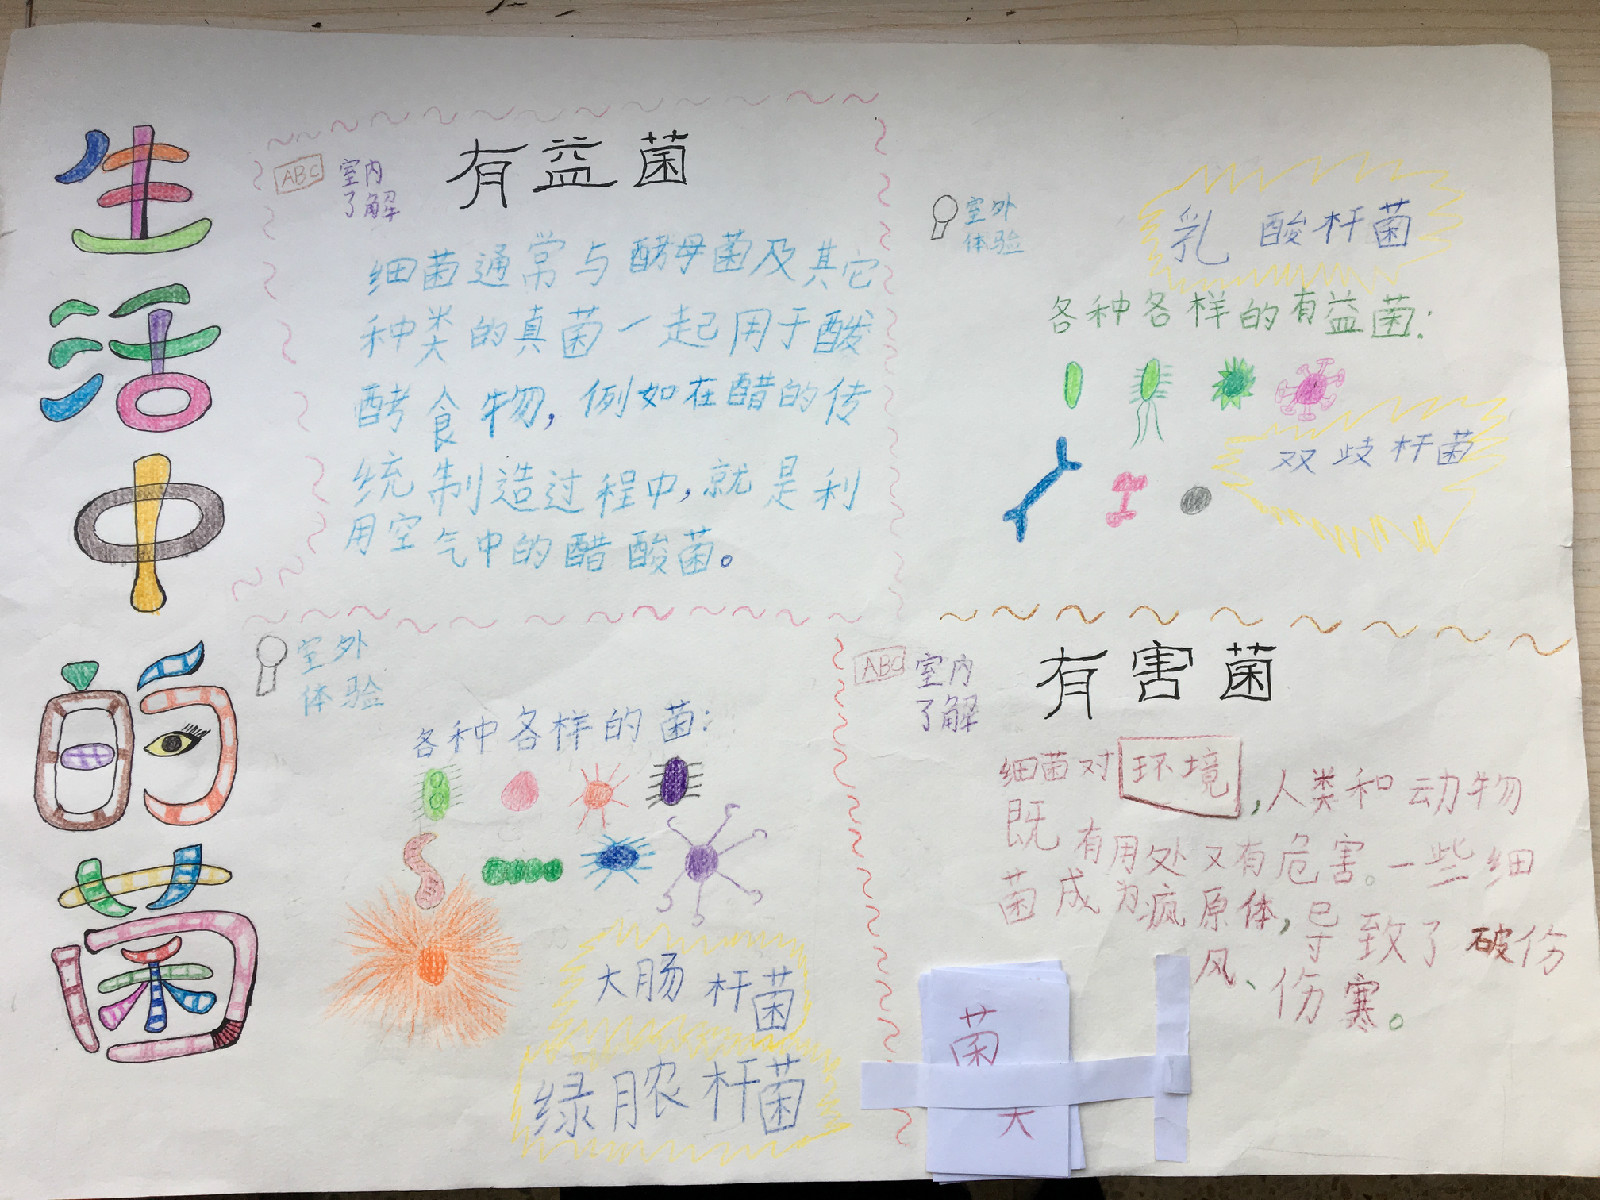 生活中的菌
ABC
室内
了解
有益菌
细菌通常与酵母菌及其它
种类的真菌一起用于酸
酵食物，例如在醋的传
统制造过程中，就是利
用空气中的醋酸菌。
室外
体验
乳酸杆菌
各种各样的有益菌：
双歧杆菌
室外
体验
各种各样的菌：
大肠杆菌
绿脓杆菌
ABC
室内
了解
有害菌
细菌对环境，人类和动物
既有用处又有危害。一些细
菌成为疯原体，导致了破伤
风、伤寒。
菌